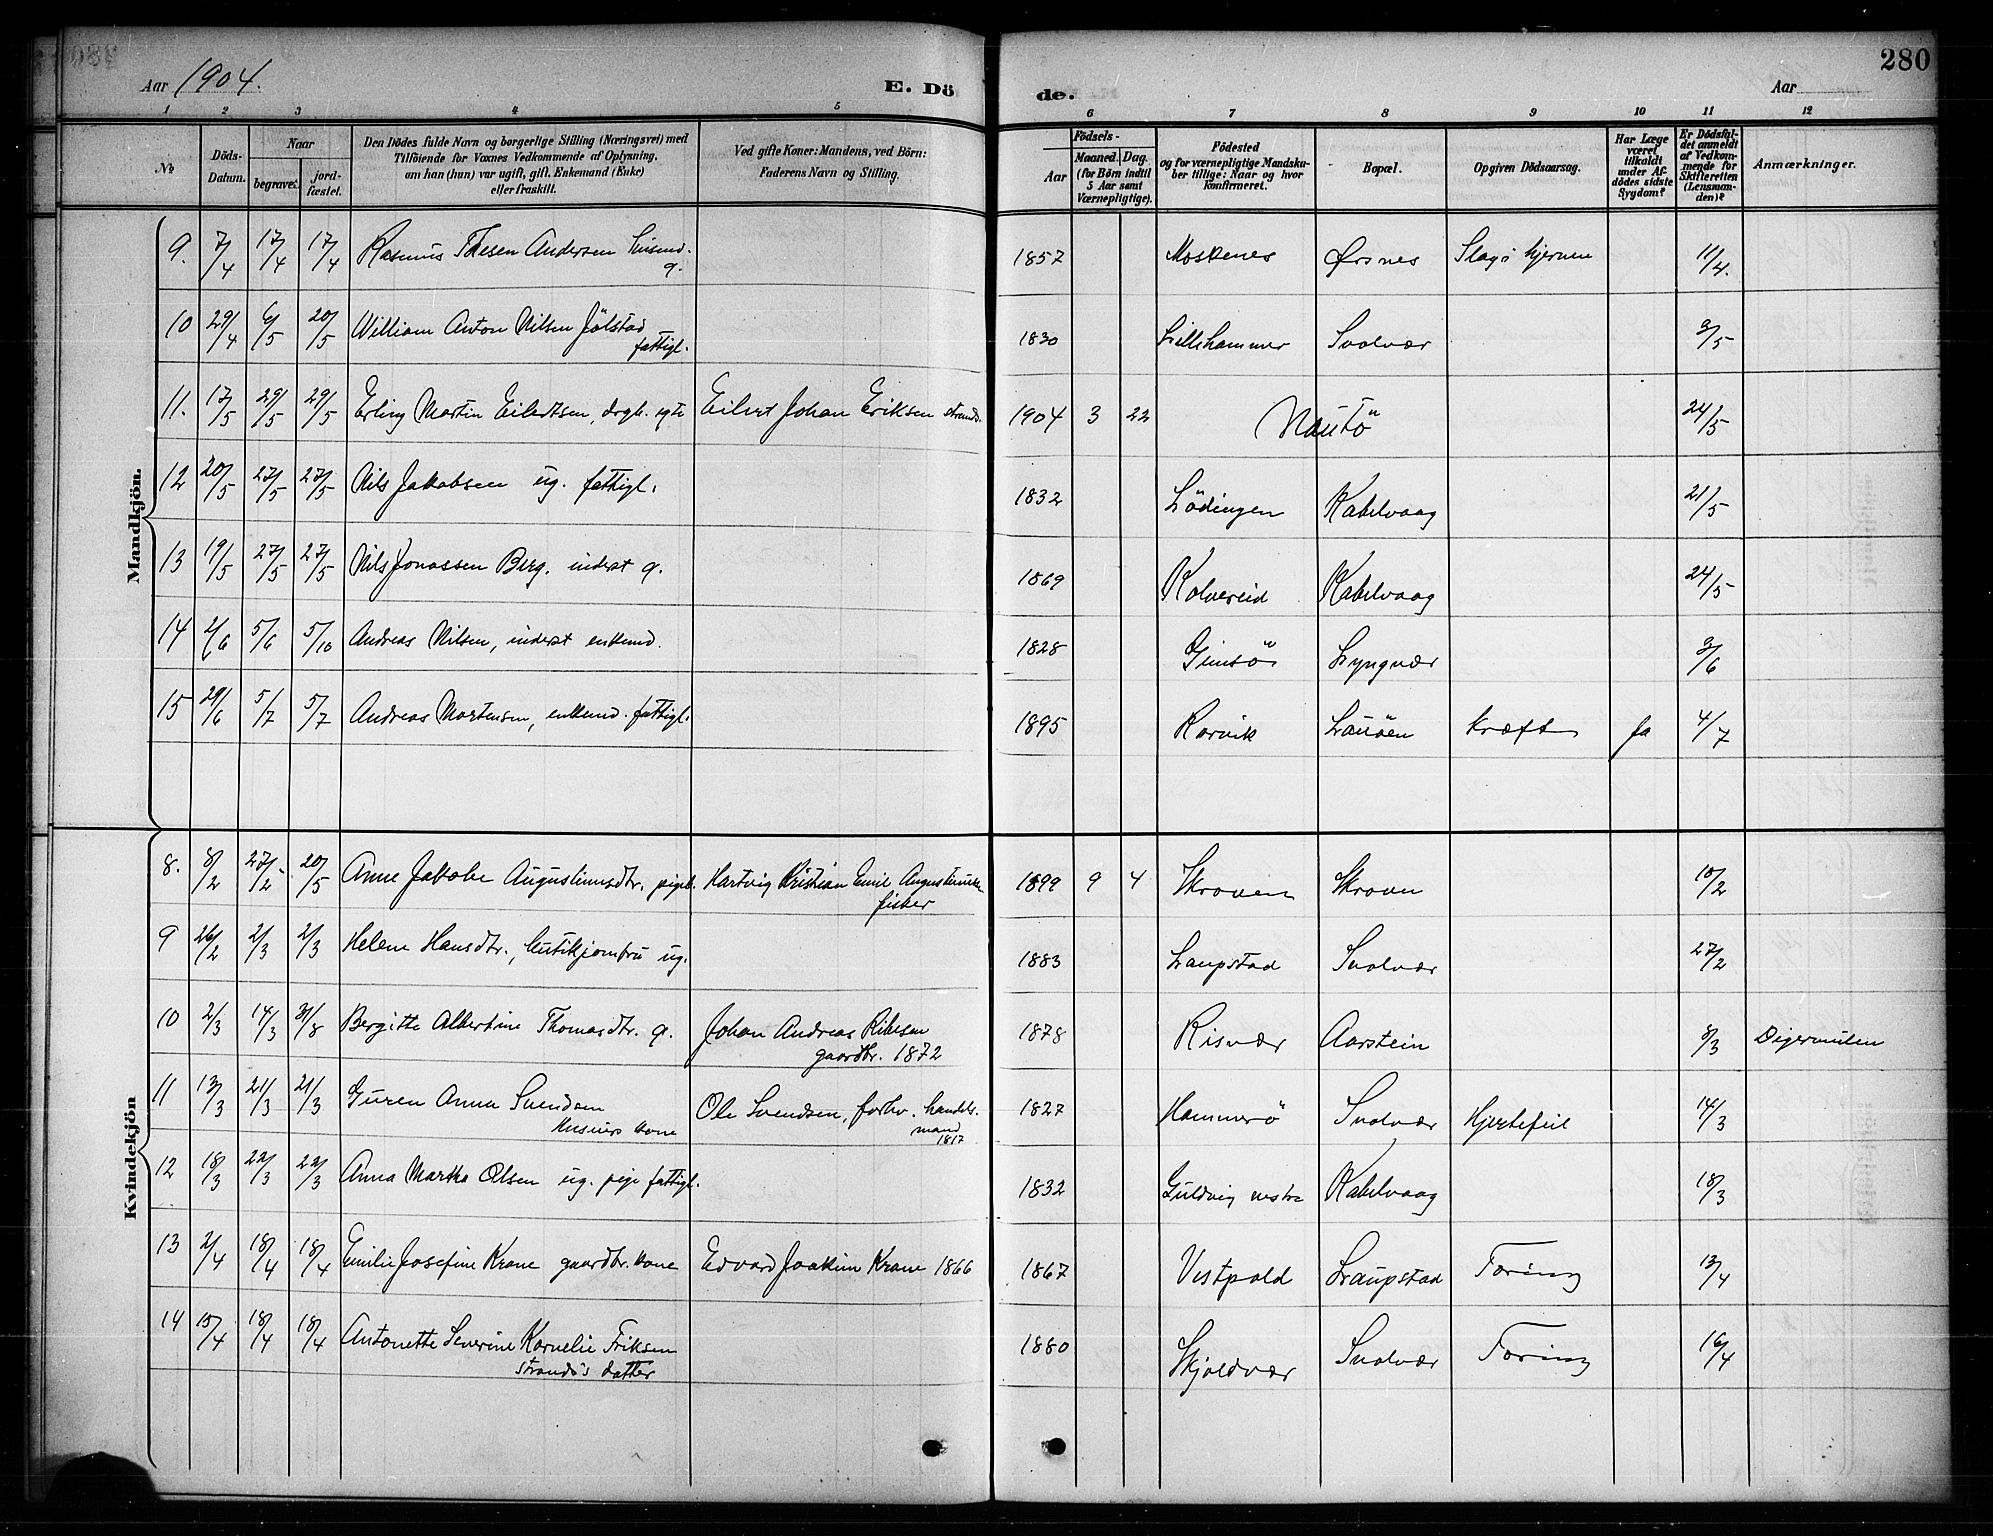 280
Aar 1904.
E. Dö
de.
Aar
1 2 3 4 5 6 7 8 9 10 11 12
No
Döds-Datum.
Naar
begravet.
jord-fæstet.
Den Dödes fulde Navn og borgerlige Stilling (Næringsvei) med
Tilföiende for Voxnes Vedkommende af Oplysning,
om han (hun) var ugift, gift, Enkemand (Enke)
eller fraskilt.
Ved gifte Koner: Mandens, ved Börn:
Faderens Navn og Stilling.
Födsels-
Aar
Maaned. Dag.
(for Börn indtil
5 Aar samt
Værnepligtige).
Födested
og for værnepligtige Mandsku-
ber tillige: Naar og hvor
konfirmeret.
Bopæl.
Opgiven Dödsaarsag.
Har Læge
været
tilkaldt
under Af-
dödes sidste
Sygdom?
Er Dödsfal-
det anmeldt
af Vedkom-
mende for
Skifteretten
(Lensman-
den)?
Anmærkninger.
Mandkjön.
9. 7/4 17/4 17/4 Rasmus Thesen Andersen g. 1857 Moskenes Ørsnes Slag i hjernen 11/4.
10 29/4 6/5 20/5 William Anton Nilsen Jölstad 1830 Lillehammer Svolvær 3/5
fattigl.
11. 17/5 29/5 29/5 Erling Martin Eilertsen, drgb. egte Eilert Johan Eriksen strands. 1904 3 22 Nautö 24/5
12 20/5 27/5 27/5 Nils Jakobsen ug. fattigl. 1832 Lödingen Kabelvaag 21/5
13 19/5 27/5 27/5 Nils Jonassen Berg. inderst g. 1869 Kolvereid Kabelvaag 24/5
14 2/6 5/6 5/10 Andreas Nilsen, inderst enkemd. 1828 Gimsö Lyngvær 3/6
15 29/6 5/7 5/7 Andreas Mortensen, enkemd. fattigl. 1895 Rorvik Lauöen kræft ja 4/7
Kvindekjön
8. 8/2 27/2 20/5 Anne Jakobe Augustinusdtr. pigeb. Hartvig Kristian Emil 1899 9 4 Skroven Skroven 10/2
fisker
9 26/2 2/3 2/3 Helene Hansdtr., ug. 1883 Laupstad Svolvær 27/2
10 2/3 14/3 31/8 Bergitte Albertine Thomasdtr. g. Johan Andreas 1878 Risvær Aarstein 8/3 Digermulen
gaardbr. 1872
11 13/3 21/3 21/3 Guren Anna Svendsen Ole Svendsen, forhv. handels- 1827 Hammerö Svolvær Hjertefeil 14/3
kone mand
1817
12 18/3 22/3 22/3 Anna Martha Olsen ug. pige fattigl. 1832 Guldvig vestre Kabelvaag 18/3
13 2/4 18/4 18/4 Emilie Josefine Krane gaardbr. kone Edvard Joakim Krane 1866 1867 Vestpold Laupstad Tæring 13/4
14 15/4 18/4 18/4 Antonette Severine Kornelie Eriksen 1880 Skjoldvær Svolvær Tæring 16/4
strands's datter